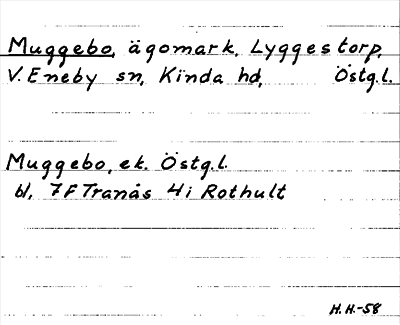 Muggebo, ägomark, Lyggestorp,
V. Eneby sn, Kinda hd, Östg.l.
Muggebo, ek. Östg.l.
bl, 7F Tranås 4i Rothult
H.H.-58